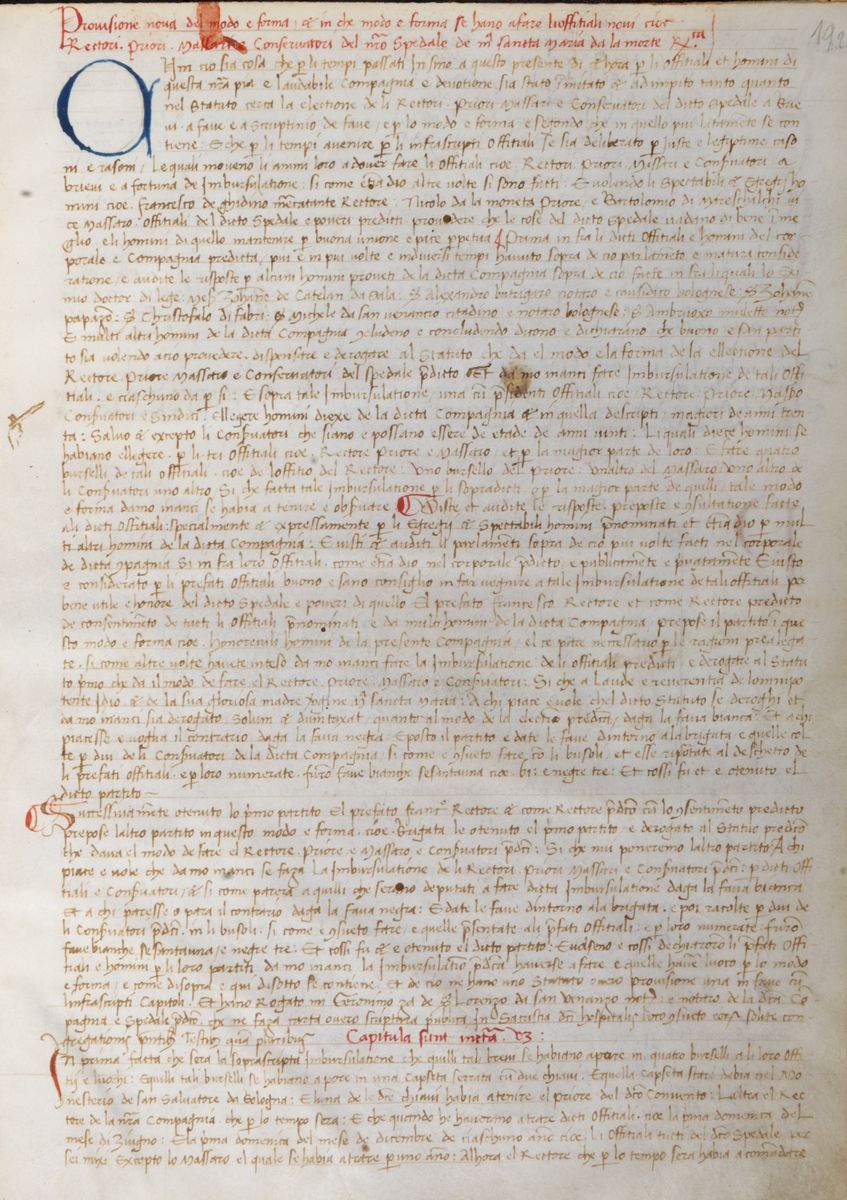 192
Provisione nova del modo e forma, & in che modo e forma se hano afare li offitiali novi cioe
Rectori. Priori. Massari e Conservatori del nro Spedale de mª sancta maria da la morte
Um cio sia cosa che p li tempi passati Insino a questo presente di & hora p li offitiali et homini di
questa nra pia e laudabile Compagnia e devotione sia stato imitato & adimpito tanto quanto
nel Statuto cerca la electione de li Rectori. Priori Massari e Conservatori del dicto Spedale a
a fave e a Scriptinio de fave, e p lo modo e forma e segondo che in quello piu latamete se con
tiene: Et che p li tempi avenire p li infrascripti offitiali Se sia deliberato p juste e legiptime caso
ni e rasoni, Le quali moveno li animi loro adover fare li offitiali cioe. Rectori. Priori. Massari e Conservatori a
brevi e a fortuna de Imbursulatione: si come etia dio altre volte si sono facti: E volendo li Spectabili & Egregij ho
mini cioe. Francesco de ghidino mercatante Rectore: Nicolo da la moneta Priore, e Bartolomio di Mareschalchi vi
ce Massaro: offitiali del dicto Spedale e poveri predicti provedere che le cose del dicto Spedale vadano di bene i me
glio, e li homini di quello mantenere p buona unione e pace ppetua Prima in fra li dicti offitiali e homini del cor
porale e Compagnia predicta, piu e in piu volte e indiversi tempi havuto sopra de cio parlameto e matura conside
ratione, e audite le risposte p alcuni homini proveti de la dicta Compagnia sopra de cio facte in fra li quali lo Exi
mio doctor di lege: Mes. Zohane de Catelan da Sala: S. Alexandro butrigaro notaro e causidico bolognese: S. Zohane
paparzo: S. Christofalo di fabri: S. Michele da san venancio citadino e notaro bolognese: S. Ambruoxo
E multi altri homini de la dicta Compagnia concludeno e concludendo dicono e dichiarano che buono e san parti
to sia volendo acio provedere. dispensare e derogare al Statuto che da el modo e la forma de la ellectione del
Rectore. Priore Massaro e Conservatori del spedale pdicto Et da mo manci fare Imbursulatione de tali offi
tiali. e ciaschuno da p si: E sopra tale Imbursulatione, una cu psidenti offitiali cioe. Rectore. Priore. Massaro
Conservatori e Sindici. Ellegere homini diexe de la dicta Compagnia & in quella descripti, magiori de anni tren
ta: Salvo & excepto li Conservatori che siano e possano essere de etade de anni vinti: Li quali diexe homini se
habiano ellegere. p li tri offitiali cioe. Rectore Priore e Massaro, et p la magior parte de loro: E fare quatro
burselli de tali offitiali. cioe de loffitio del Rectore: Uno bursello del Priore: Unaltro del Massaro: Uno altro &
li Conservatori uno altro. Si che facta tale Imbursulatione p li sopradicti. o p la magior parte de quilli, tale modo
e forma damo manci se habia a tenere e observare. Viste et audite le risposte. preposte e consultatione facte
ali dicti offitiali: specialmente & expressamente p li Egregij & Spectabili homini pnominati et etia dio p mul
ti altri homini de la dicta Compagnia: E visti & auditi li parlamenti sopra de cio piu volte facti nel corporale
de dicta compagnia Si in fra loro offitiali, come etia dio nel corporale pdicto, e publicamente e pvatamente: E visto
e considerato p li prefati offitiali buono e sano consiglio in far vegnire a tale Imbursulatione de tali offitiali. per
bene utile e honore del dicto Spedale e poveri di quello. El prefato francesco Rectore et come Rectore predicto
de consentimeto de tucti li offitiali pnominati. e da multi homini de la dicta Compagnia, prepose il partito i que
sto modo e forma cioe. Honorevili homini de la presente Compagnia, el ce pare necessario p le ragioni prealega
te. si come altre volte havete inteso da mo manci fare la Imbursulatione de li offitiali predicti. e derogare al Statu
to pmo che da il modo de fare el Rectore Priore. Massaro e Conservatori: Si che a Laude e reverentia de lomnipo
tente Idio, & de la sua gloriosa madre vergene mª sancta Maria: A chi piace e vole chel dicto Statuto se deroghi et
da mo manci sia derogato, Solum & duntaxat, quanto al modo de la electio predicta, daga la fava bianca. Et a chi
piacesse e voglia il contrario daga la fava negra: E posto il partito e date le fave dintorno ala brigata, e quelle col
te p dui de li Conservatori de la dicta Compagnia. si come e consueto fare co li busoli, et esse riportate al deschetto de
li prefati offitiali. e p loro numerate. furono fave bianche sesantauna cioe. 61: e negre tre: Et cossi fu et e otenuto el
dicto partito
Successivamete otenuto lo pmo partito. El prefato franco Rectore & come Rectore pdicto cu lo consentimeto predicto
prepose laltro partito in questo modo e forma. cioe. Brigata le otenuto el pmo partito, e derogato al Statuto predicto
che dava el modo de fare el Rectore. Priore. e Massaro, e Conservatori pdicti: Si che nui poneremo laltro partito. A chi
piace e vole che da mo manci se faza La Imbursulatione de li Rectori. Priori Massari e Conservatori pdicti: p dicti offi
tiali e Conservatori, & si come parera a quilli che serano deputati a fare dicta Imbursulatione daga la fava bianca
Et a chi paresse o para il contrario daga la fava negra: E date le fave dintorno ala brigata. e poi racolte p dui de
li Conservatori pdicti. in li busoli, si come e consueto fare. e quelle psentate ali pfati offitiali. e p loro numerate. furono
fave bianche sesantauna, e negre tre: Et cossi fu & e otenuto el dicto partito: E vaseno e cossi dechiarorono li pfati offi
tiali e homini p li loro partiti da mo manci la imbursulatio pdicta haverse a fare. e quelle havere luoco p lo modo
e forma, e come disopra e qui disotto se contiene. Et de cio ne hano uno Statuto overo provisione una in fare cu
infrascripti Capitoli. Et hano Rogato mi Ieronimo za de S. Lorenzo da san venanzo noto e notaro de la dicta Co
pagnia e Spedale pdicto, che ne faza carta overo scriptura publica. In Sacristia dicti hospitalis loco consueto
gregationis Testibus quam pluribus Capitula sunt
In prima facta che sera la soprascripta imbursulatione che quilli tal brevi se habiano apore in quatro burselli ali loro offi
tij e luochi: Equilli tali burselli se habiano a pore in una Capseta serrata cu due chiavi. Equella capseta stare debia nel Mo
nesterio de san Salvatore da Bologna: E luna de le dicte chiavi habia a tenere el priore del dicto Convento: Laltra el Rec
tore de la nra Compagnia che p lo tempo sera: E che quando he haverano atrare dicti offitiali. cioe la pma domenica del
mese di Zuogno: E la pma domenica del mese de dicembre de ciaschuno ano cioe. li offitiali tucti del dicto Spedale
sei mixi Excepto lo Massaro el quale se habia atrare p uno ano: Alhora el Rectore che p lo tempo sera habia a comadare